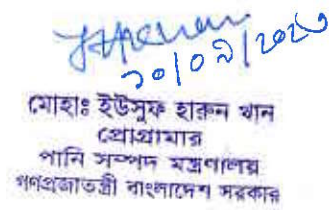 ২০/০৯/২০২৩
মোহাঃ ইউসুফ হারুন খান
প্রোগ্রামার
পানি সম্পদ মন্ত্রণালয়
গণপ্রজাতন্ত্রী বাংলাদেশ সরকার